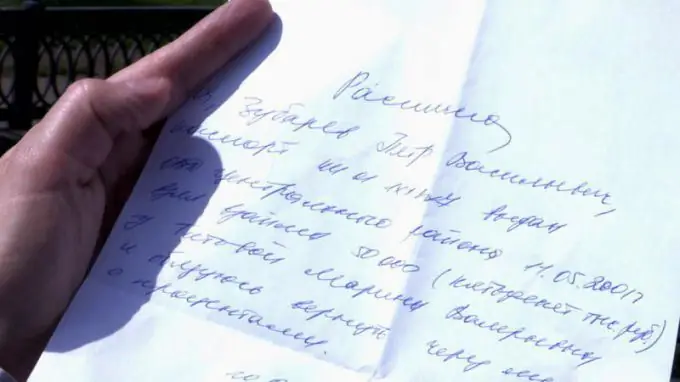 Расписка
Я, Зубарев Пётр Васильевич,
паспорт выдан
ОВД Центрального района 11.05.2001г
взял взаймы 50000 (пятьдесят тыс. руб.)
у Титовой Марины Валерьевны
и обязуюсь вернуть через
с процентами.